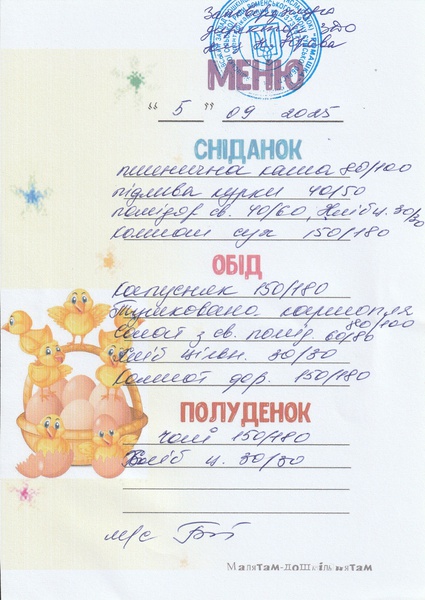 Затверджую
директор ЗДО
МЕНЮ
" 5 " 09 2025
СНІДАНОК
пшенична каша 80/100
підлива курки 40/50
помідор св. 40/60, Хліб ц. 30/30
компот сух 150/180
ОБІД
Капусняк 150/180
Тушкована картопля
80/100
Салат з св. помід. 60/80
Хліб цільн. 30/30
компот 150/180
ПОЛУДЕНОК
150/180
Хліб ц. 30/30
м/с
Малятам-дошкільнятам